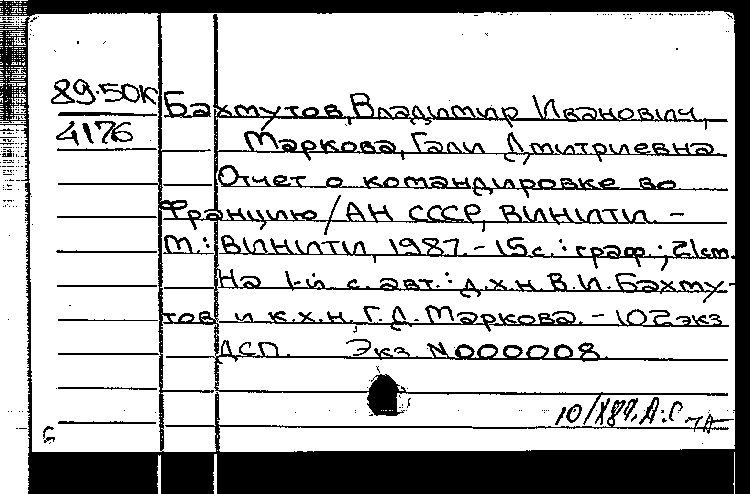 89-50К
4176
Бахмутов, Владимир Иванович,
Маркова, Гали Дмитриевна
Отчет о командировке во
Францию / АН СССР, ВИНИТИ. -
М.: ВИНИТИ, 1987. - 15 с. : граф.; 21 см.
На 1-й с. авт.: д.х.н. В.И. Бахму-
тов и к.х.н. Г.Д. Маркова. - 102 экз
ДСП. Экз N000008.
10/X89.